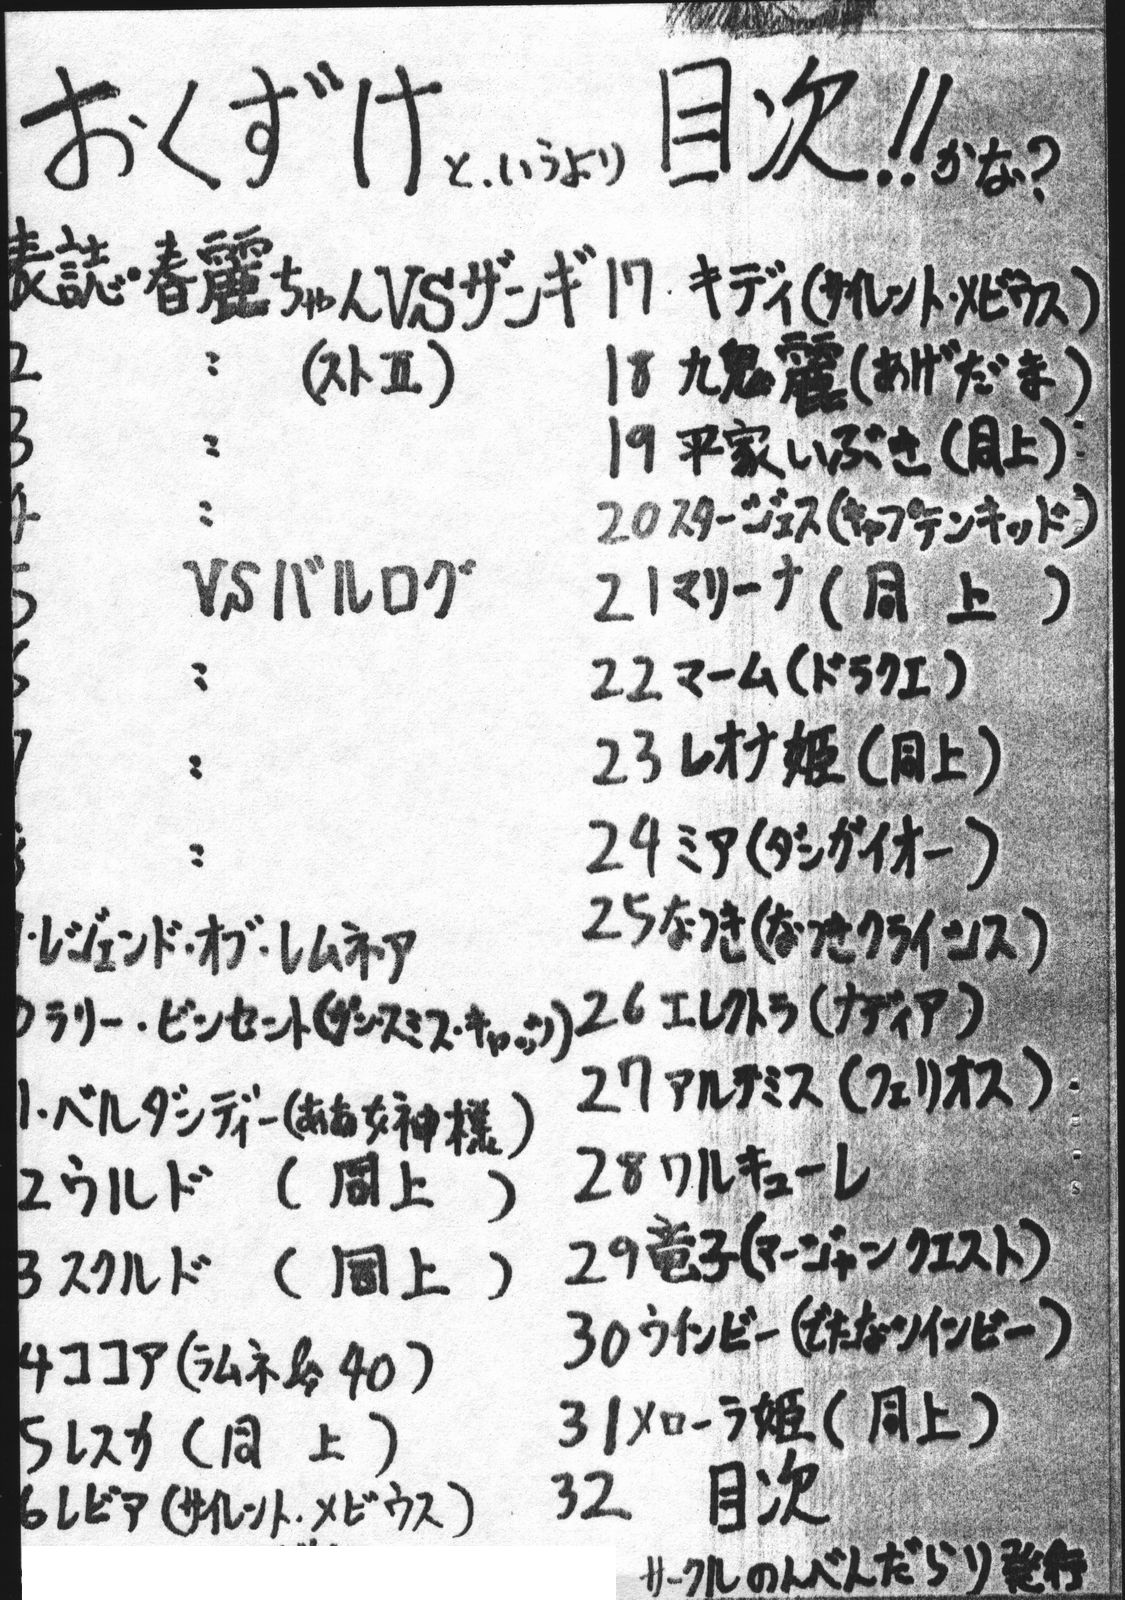 おくずけと、いうより 目次!!かな?
表誌・春麗ちゃんVSザンギ
2 〃 (ストⅡ)
3 〃
4 〃
5 VSバルログ
6 〃
7 〃
8 〃
・レジェンド・オブ・レムネア
0ラリー・ビンセント(ガン・スミス・キャッツ)
1・ベルダンディー(ああ女神様)
2ウルド (同上)
3スクルド (同上)
4ココア(ラムネ&40)
5レスカ(同上)
6レビア(サイレント・メビウス)
17 キディ(サイレント・メビウス)
18 九鬼麗(あげだま)
19 平家いぶき(同上)
20スタージェス(キャプテンキッド)
21マリーナ(同上)
22マーム(ドラクエ)
23レオナ姫(同上)
24ミア(ダンガイオー)
25なつき(なつきクライシス)
26エレクトラ(ナディア)
27アルテミス(フェリオス)
28ワルキューレ
29竜子(マージャンクエスト)
30ウインビー(でたなツインビー)
31メローラ姫(同上)
32 目次
サークルのんべんだらり発行